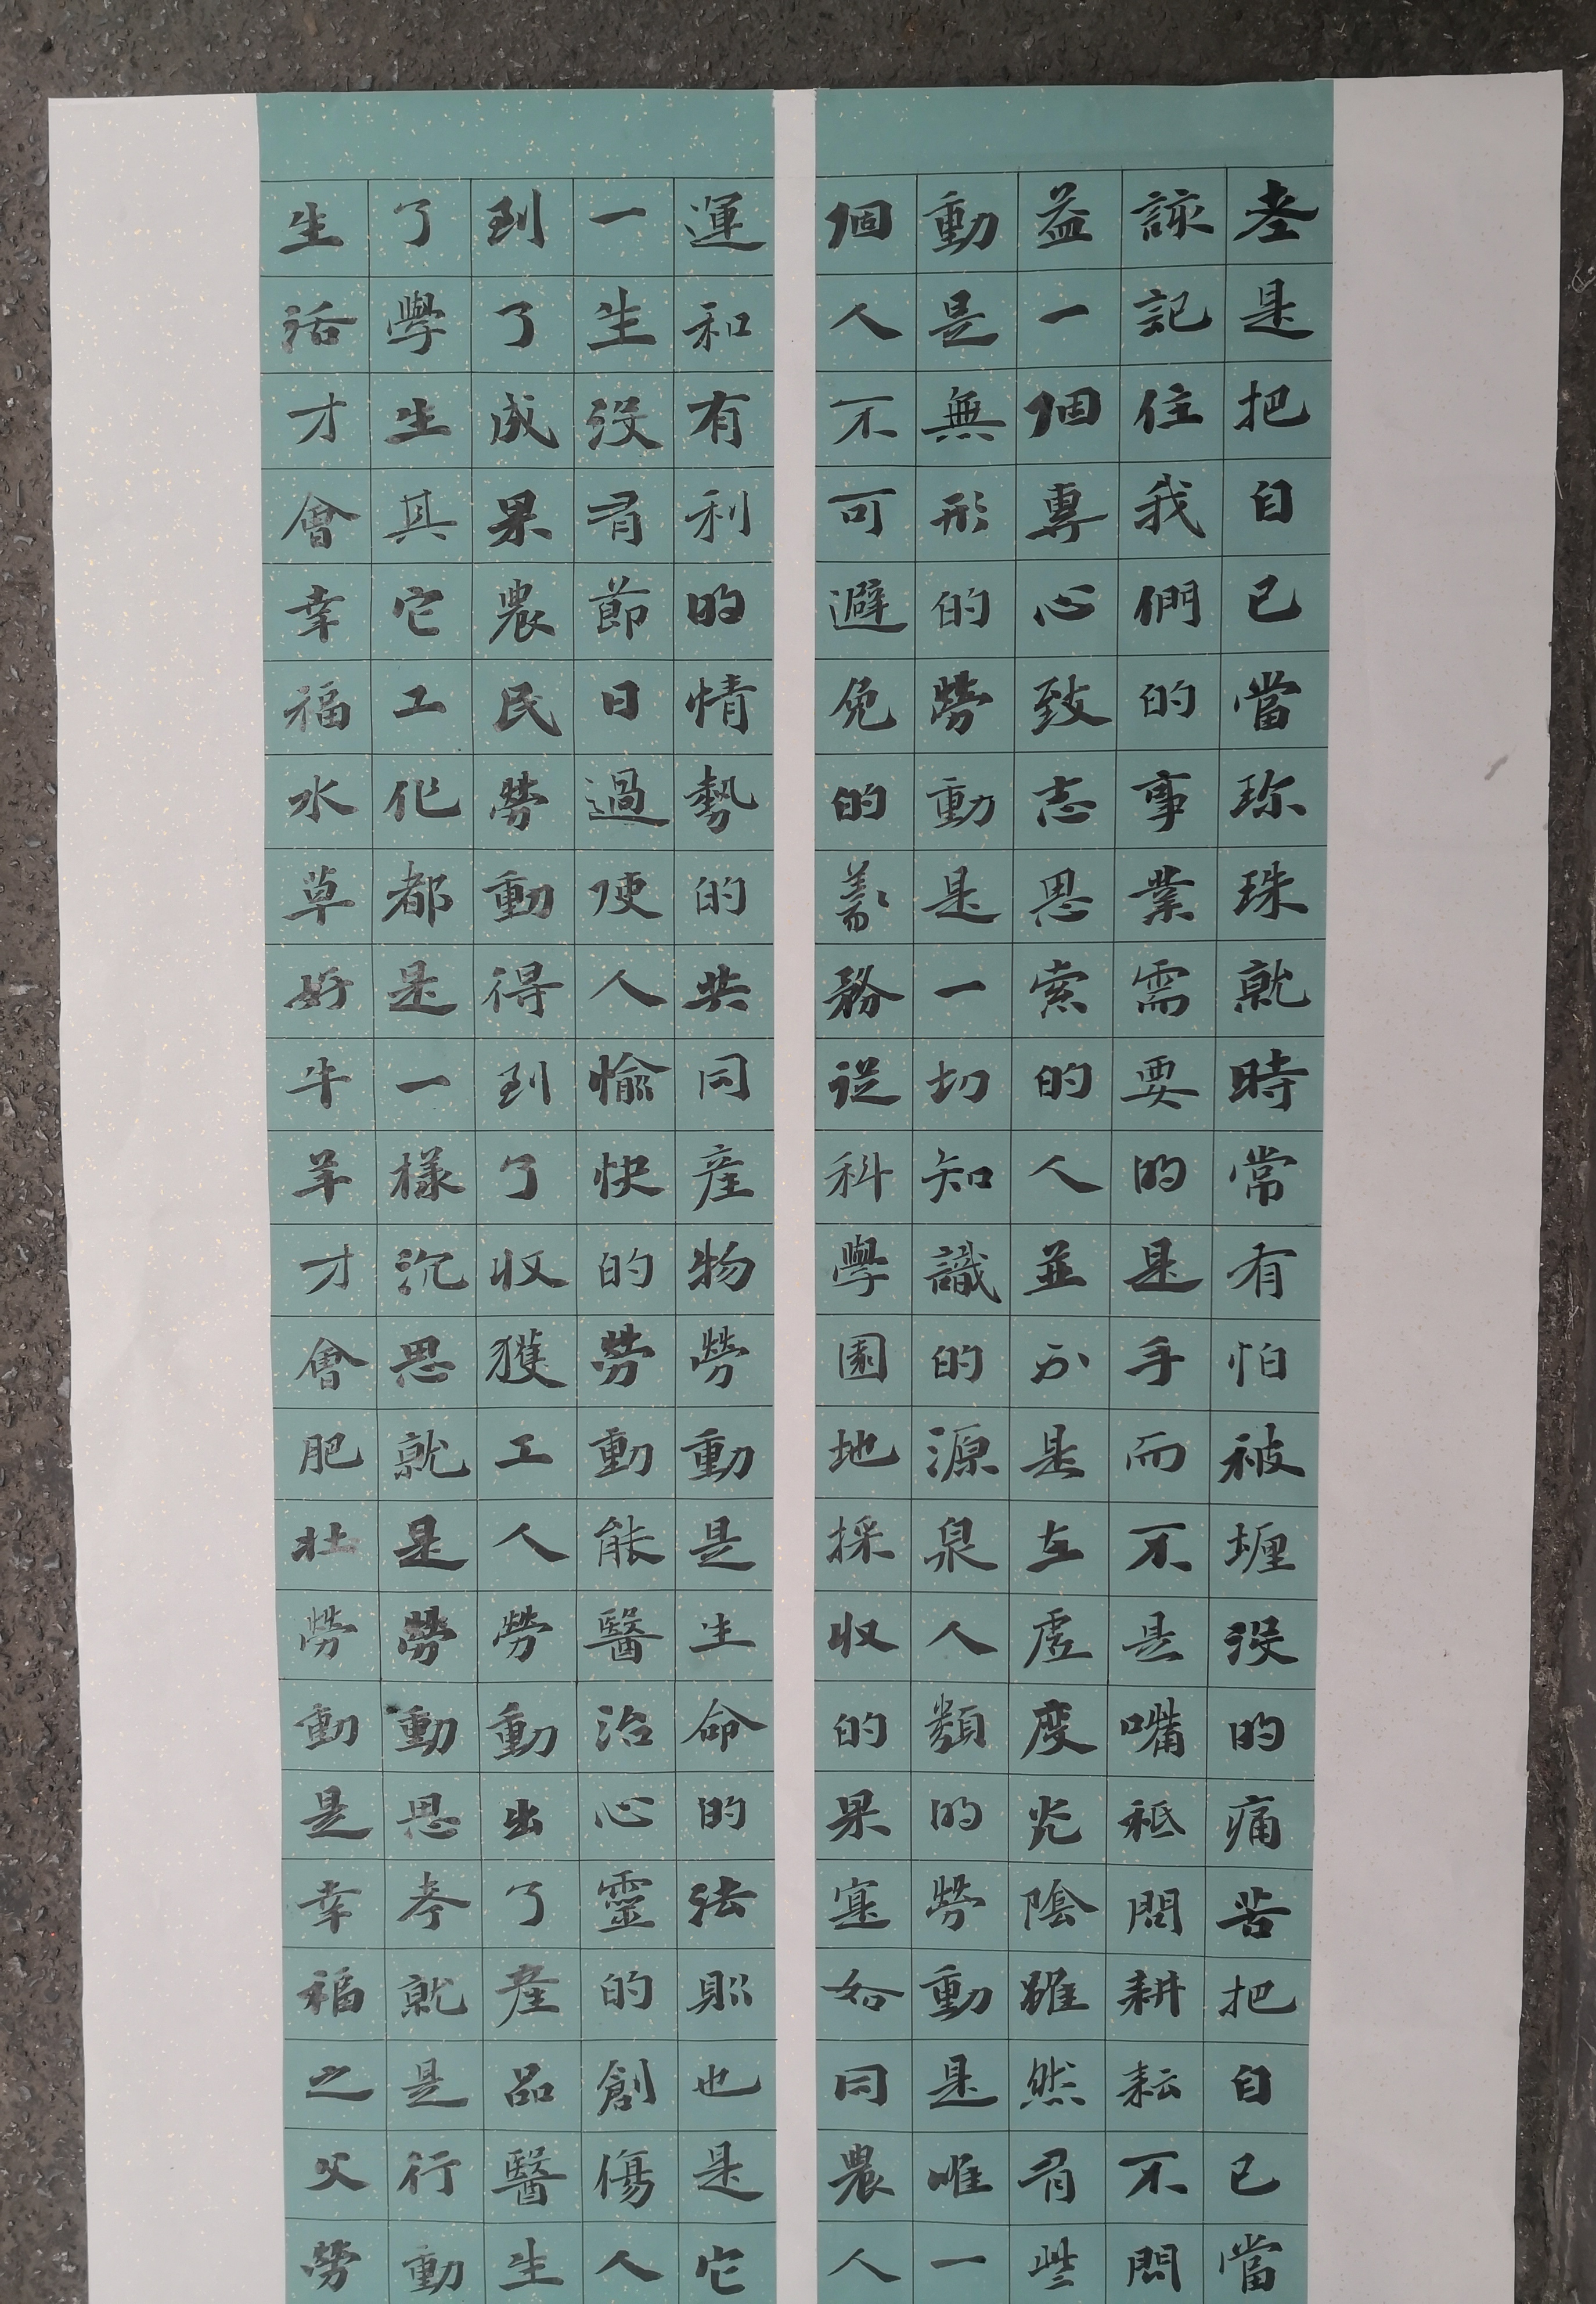 老是把自已當珎珠就時常有怕被堙没的痛苦把自已當
詠記住我們的事業需要的是手而不是嘴秪問耕耘不問
益一個專心致志思索的人並不是在虛度光陰雖然有些
動是無形的勞動是一切知識的源泉人類的勞動是唯一
個人不可避免的義務從科學園地採收的果寔如同農人
運和有利的情勢的共同産物勞動是生命的法則也是它
一生没有節日過便人愉快的勞動能醫治心靈的創傷人
到了成果農民勞動得到了收獲工人勞動出了産品醫生
了學生其它工作都是一樣沉思就是勞動思考就是行動
生活才會幸福水草好牛羊才會肥壯勞動是幸福之父勞